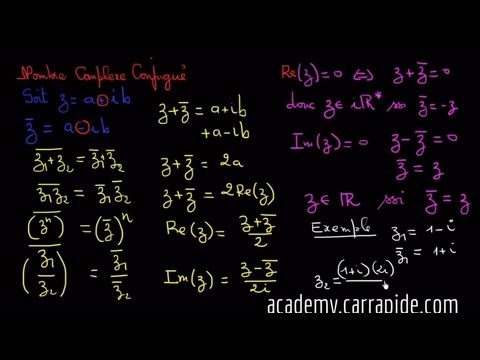 Nombre Complexe Conjugué
Soit z = a + ib
z̄ = a - ib
\overline{z₁+z₂} = z̄₁+z̄₂
\overline{z₁z₂} = z̄₁ z̄₂
(\overline{zⁿ}) = (z̄)ⁿ
\overline{(z₁/z₂)} = z̄₁/z̄₂
z + z̄ = a + ib
+ a - ib
z + z̄ = 2a
z + z̄ = 2Re(z)
Re(z) = (z + z̄)/2
Im(z) = (z - z̄)/2i
Re(z) = 0 ⇔ z + z̄ = 0
donc z ∈ iℝ* ssi z̄ = -z
Im(z) = 0 z - z̄ = 0
z̄ = z
z ∈ ℝ ssi z̄ = z
Exemple z₁ = 1 - i
z̄₁ = 1 + i
z₂ = (1+i)(2i)/
academy.carrapide.com